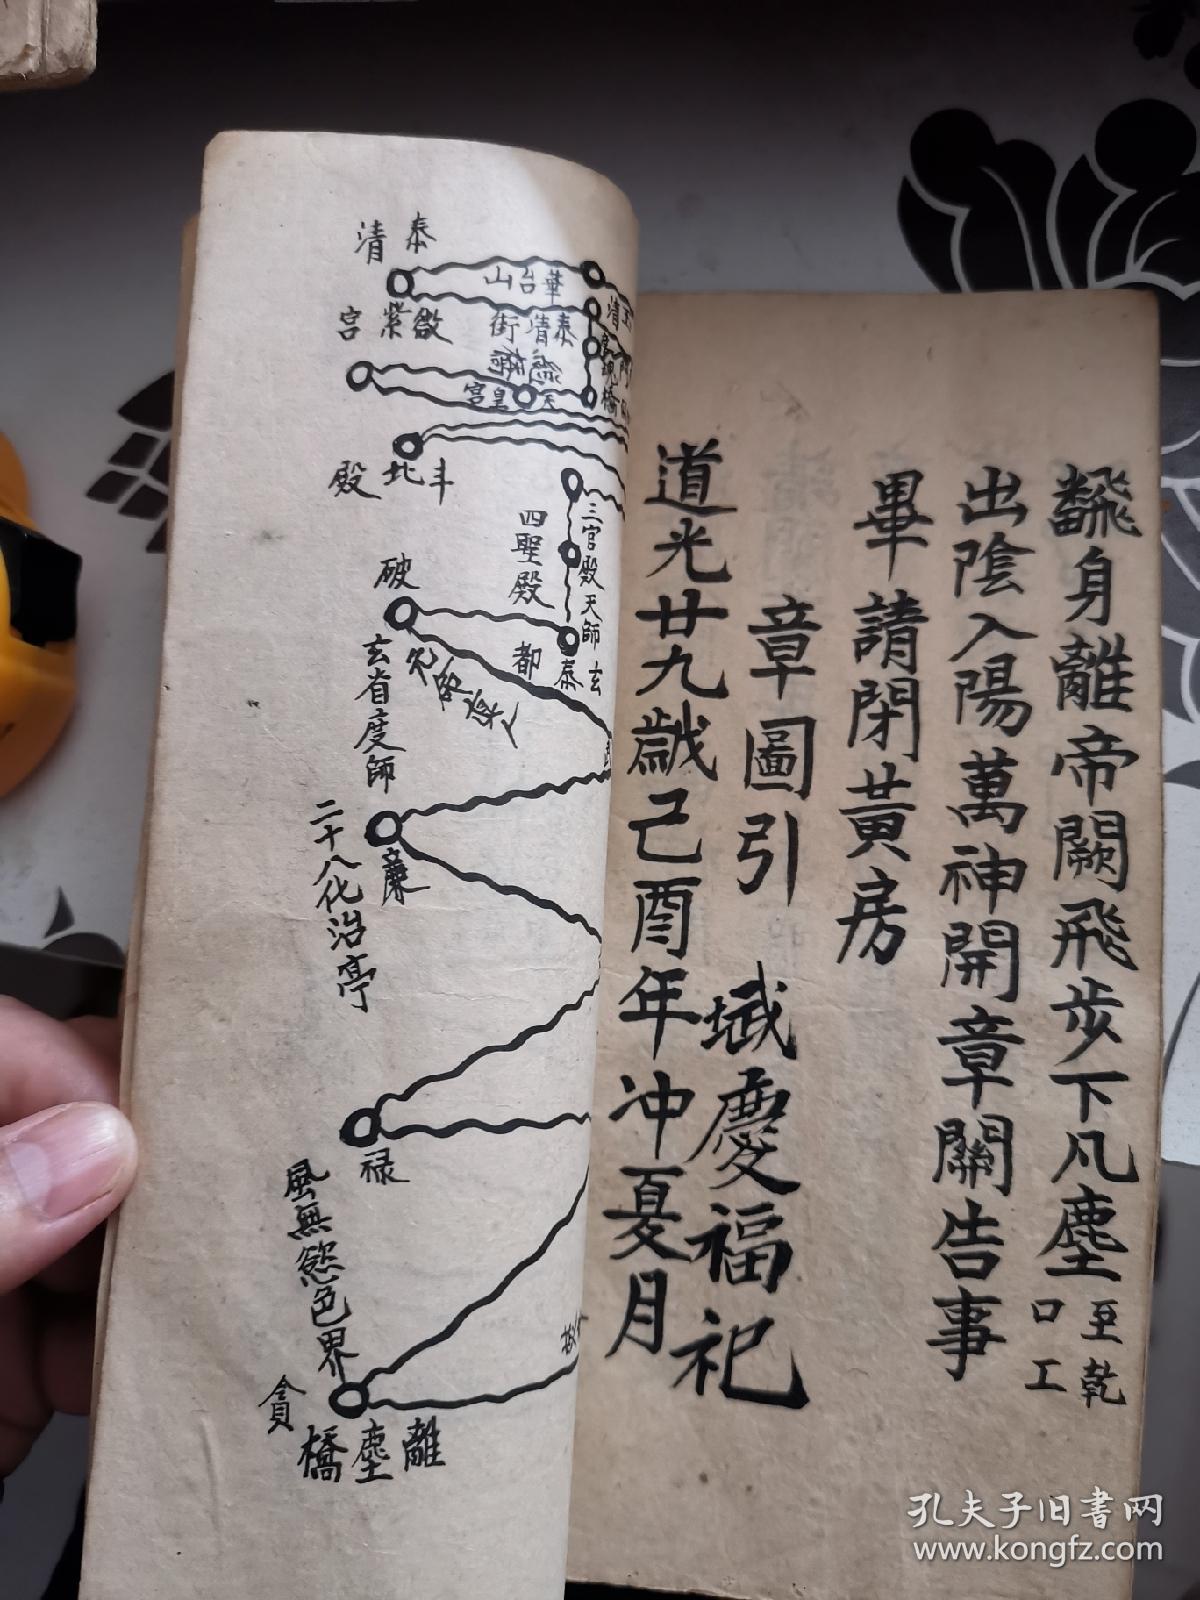 飜身離帝闕飛步下凡塵至乾
口工
出陰入陽萬神開章關告事
畢請閉黃房
章圖引
慶福祀
道光廿九歲己酉年冲夏月
泰清
華台山
紫
宮
泰清街
天皇宮
橋
斗北殿
三官殿天師
玄
四聖殿
泰都
破
玄省度師
廉
二十八化治亭
禄
風無慾色界
貪
離塵橋
孔夫子旧书网
www.kongfz.com